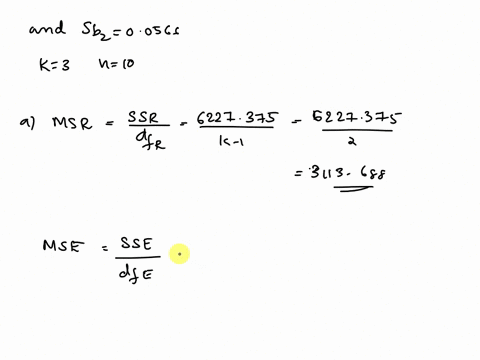 and Sb2 = 0.0568
K=3 n=10
a) MSR = SSR/dfR = 6227.375/K-1 = 6227.375/2
= 3113.688
MSE = SSE/dfE